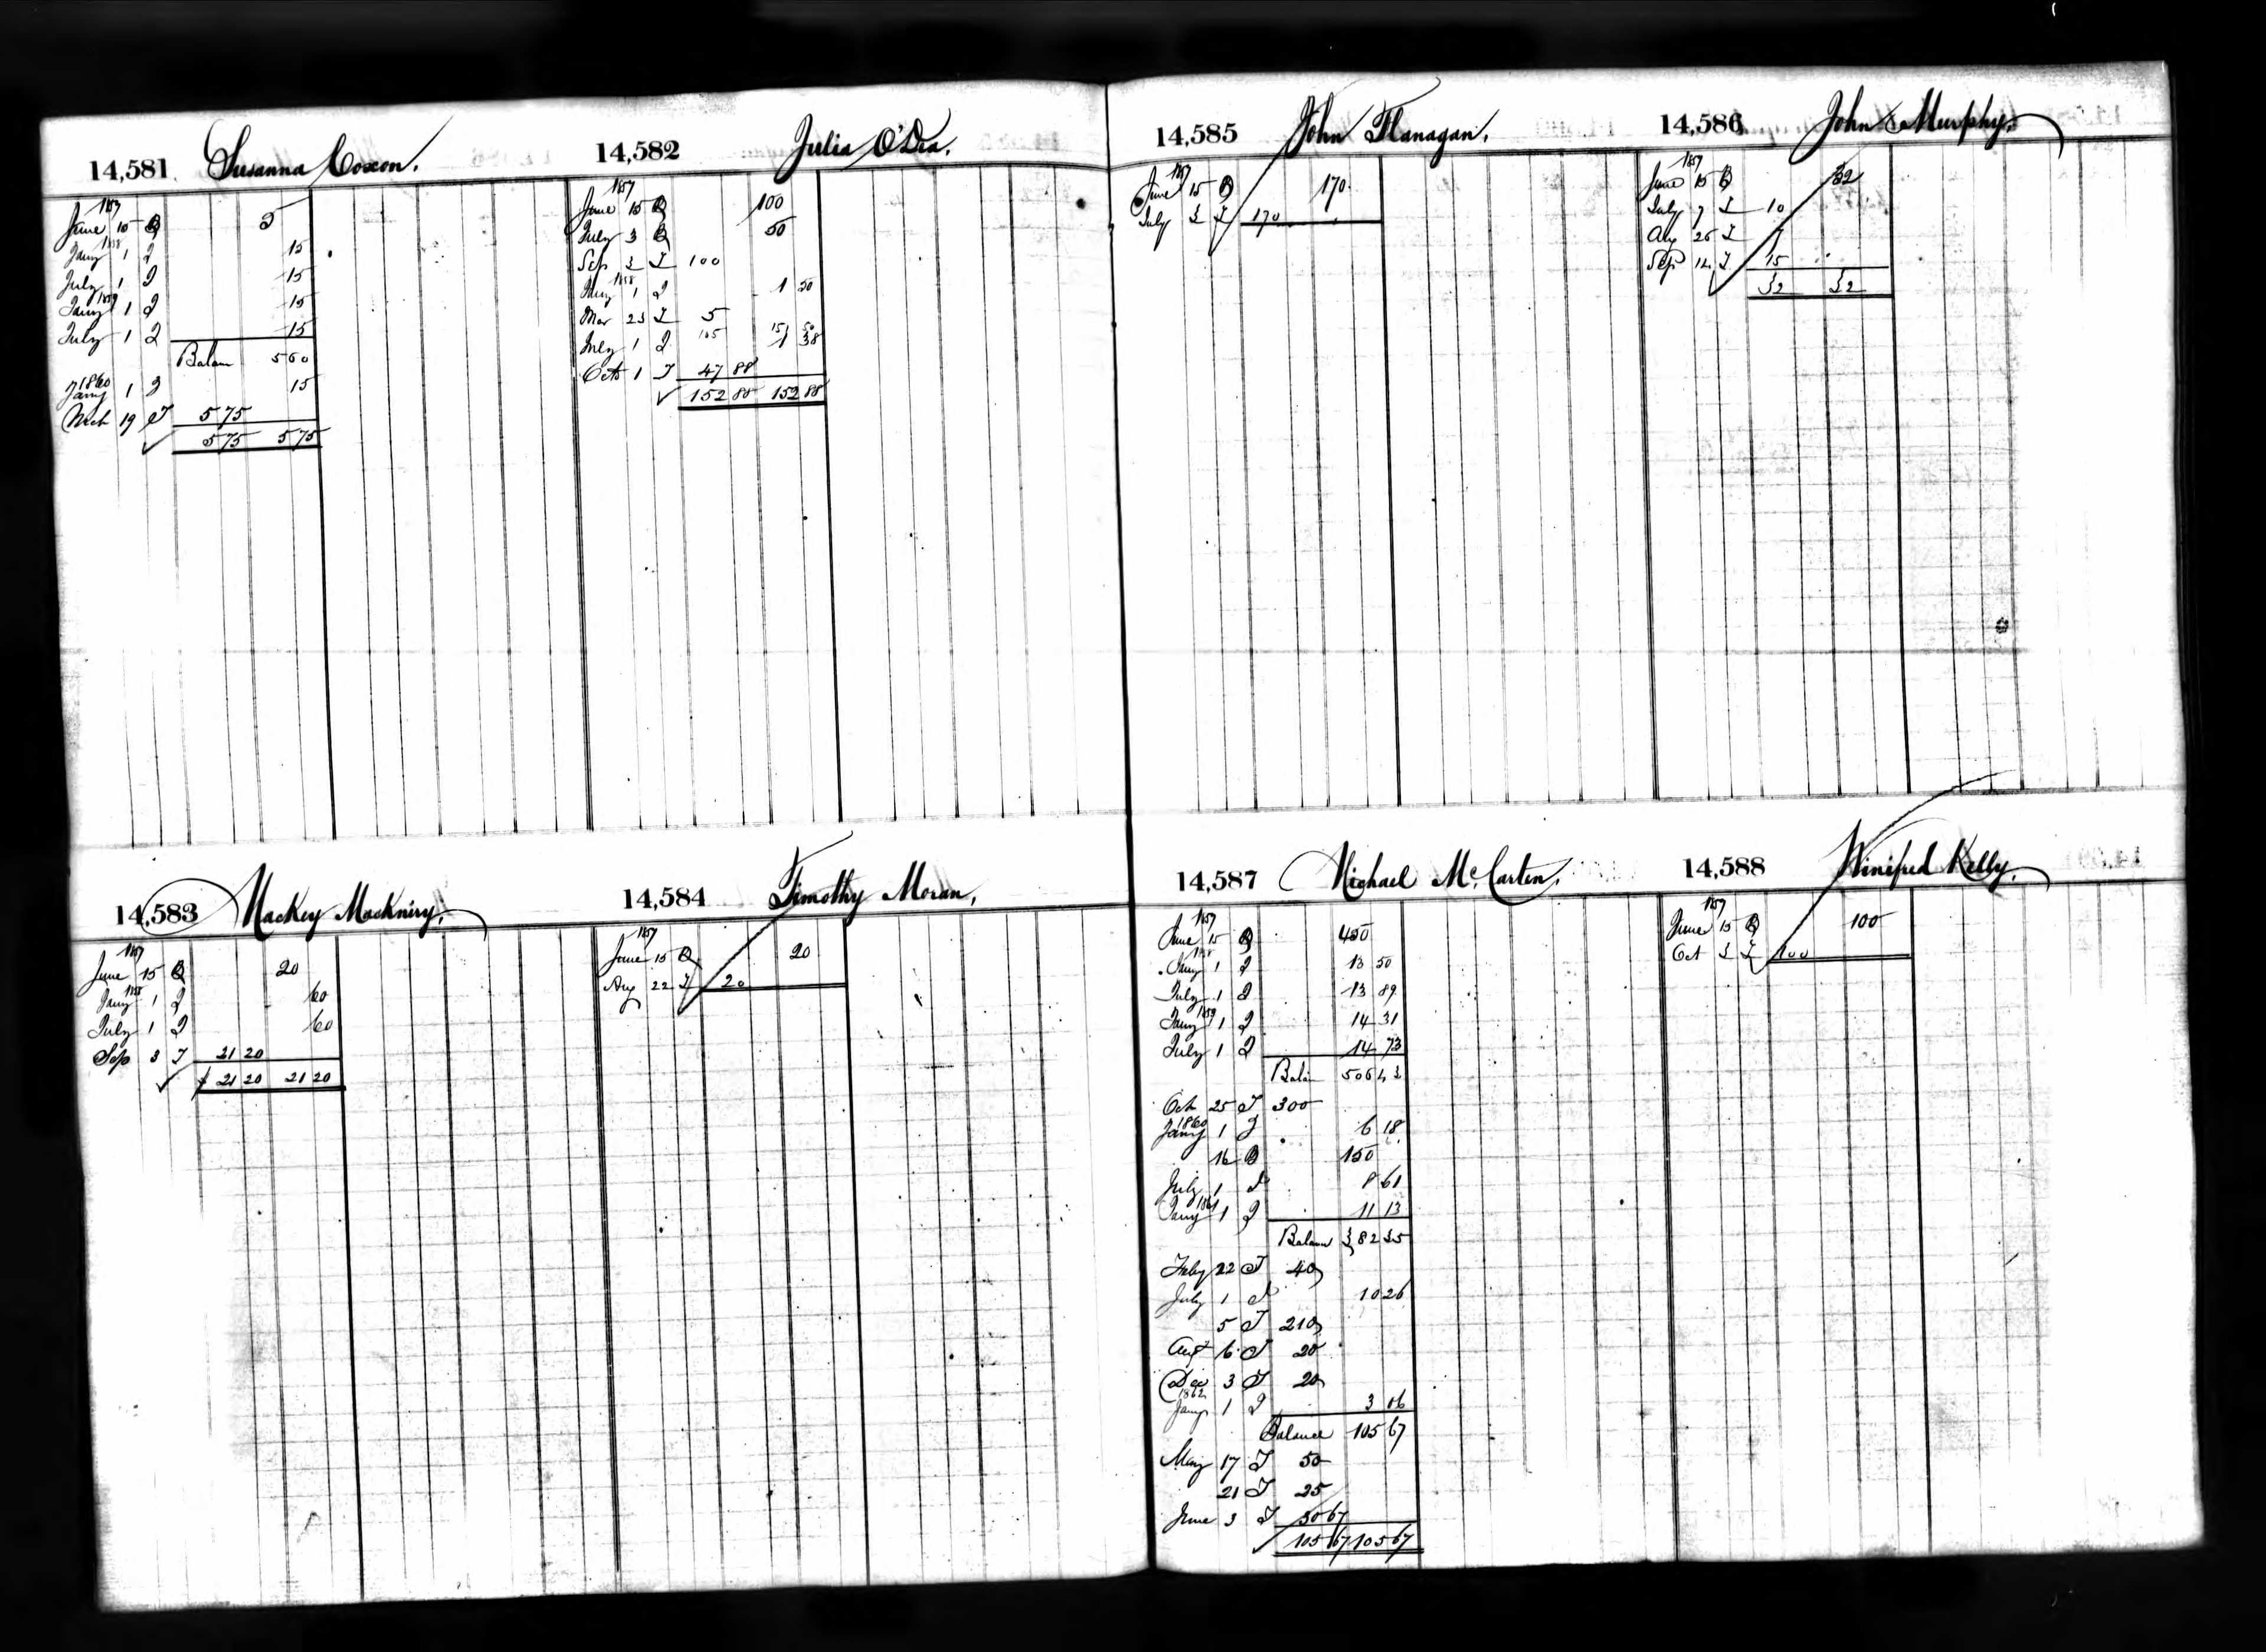 14,581 Susanna Coxon.
1857
June 15 B 5
1858
Jany 1 I 15
July 1 I 15
1859
Jany 1 I 15
July 1 I 15
Balan 5 60
1860
Jany 1 I 15
Mch 19 T 5 75
5 75 5 75
14,582 Julia O'Dea.
1857
June 15 B 100
July 3 B 50
Sep 3 T 100
1858
Jany 1 I 1 50
Mar 23 T 5
105 151 50
July 1 I 1 38
Octo 1 T 47 88
152 88 152 88
14,583 Mackey Mackniry.
1857
June 15 B 20
1858
Jany 1 I 60
July 1 I 60
Sep 3 T 21 20
21 20 21 20
14,584 Timothy Moran,
1857
June 15 B 20
Aug 22 T 20
14,585 John Flanagan.
1857
June 15 B 170
July 3 T 170
14,586 John Murphy.
1857
June 15 B 32
July 7 T 10
Aug 26 T 7
Sep 14 T 15
32 32
14,587 Michael Mc.Carten.
1857
June 15 B 450
1858
Jany 1 I 13 50
July 1 I 13 89
1859
Jany 1 I 14 31
July 1 I 14 73
Balan 506 43
Oct 25 T 300
1860
Jany 1 I 6 18
16 B 150
July 1 I 8 61
1861
Jany 1 I 11 13
Balance 382 35
Feby 22 T 40
July 1 I 10 26
5 T 210
Augt 6 T 20
Dec 3 T 20
1862
Jany 1 I 3 06
Balance 105 67
May 17 T 50
21 T 25
June 3 T 30 67
105 67 105 67
14,588 Winifred Kelly.
1857
June 15 B 100
Oct 3 T 100